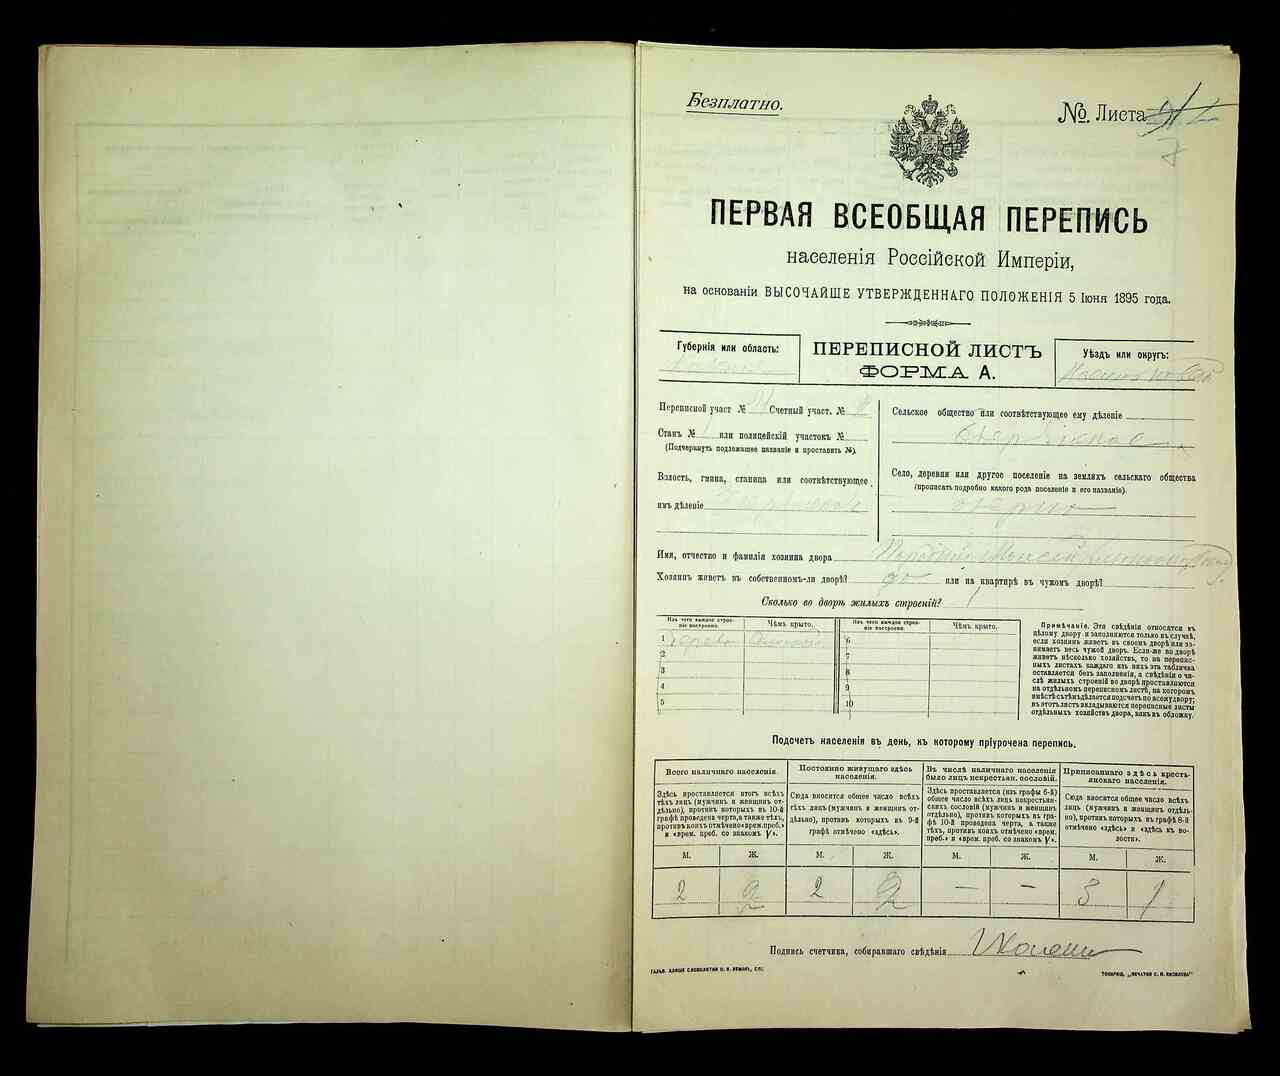 Безплатно.
№. Листа
7
ПЕРВАЯ ВСЕОБЩАЯ ПЕРЕПИСЬ
населенія Россійской Имперіи,
на основаніи ВЫСОЧАЙШЕ УТВЕРЖДЕННАГО ПОЛОЖЕНІЯ 5 Іюня 1895 года.
Губернія или область:
ПЕРЕПИСНОЙ ЛИСТЪ
ФОРМА А.
Уѣздъ или округъ:
Переписной участ № Счетный участ. №
Станъ № 1 или полицейскій участокъ №
(Подчеркнуть подлежащее названіе и проставить №).
Волость, гмина, станица или соотвѣтствующее
имъ дѣленіе
Сельское общество или соотвѣтствующее ему дѣленіе
Село, деревня или другое поселеніе на земляхъ сельскаго общества
(прописать подробно какого рода поселеніе и его названіе).
Имя, отчество и фамилія хозяина двора
Хозяинъ живетъ въ собственномъ-ли дворѣ? да или на квартирѣ въ чужомъ дворѣ?
Сколько во дворѣ жилыхъ строеній? 1
Изъ чего каждое строе-
ніе построено.
Чѣмъ крыто.
Изъ чего каждое строе-
ніе построено.
Чѣмъ крыто.
1 дерево 6
2 7
3 8
4 9
5 10
Примѣчаніе. Эти свѣдѣнія относятся къ
цѣлому двору и заполняются только въ случаѣ,
если хозяинъ живетъ въ своемъ дворѣ или за-
нимаетъ весь чужой дворъ. Если-же во дворѣ
живетъ нѣсколько хозяйствъ, то на перепис-
ныхъ листахъ каждаго изъ нихъ эта табличка
оставляется безъ заполненія, а свѣдѣнія о чи-
слѣ жилыхъ строеній во дворѣ проставляются
на отдѣльномъ переписномъ листѣ, на которомъ
вмѣстѣ съ тѣмъ дѣлается подсчетъ по всему двору;
въ этотъ листъ вкладываются переписные листы
отдѣльныхъ хозяйствъ двора, какъ въ обложку.
Подсчетъ населенія въ день, къ которому пріурочена перепись.
Всего наличнаго населенія.
Здѣсь проставляется итогъ всѣхъ
тѣхъ лицъ (мужчинъ и женщинъ от-
дѣльно), противъ которыхъ въ 10-й
графѣ проведена черта, а также тѣхъ,
противъ коихъ отмѣчено «врем. преб.»
и «врем. преб. со знакомъ V».
Постоянно живущаго здѣсь
населенія.
Сюда вносится общее число всѣхъ
тѣхъ лицъ (мужчинъ и женщинъ от-
дѣльно), противъ которыхъ въ 9-й
графѣ отмѣчено «здѣсь».
Въ числѣ наличнаго населенія
было лицъ некрестьян. сословій.
Здѣсь проставляется (изъ графы 6-й)
общее число всѣхъ лицъ некрестьян-
скихъ сословій (мужчинъ и женщинъ
отдѣльно), противъ которыхъ въ гра-
фѣ 10-й проведена черта, а также
тѣхъ, противъ коихъ отмѣчено «врем.
преб.» и «врем. преб. со знакомъ V».
Приписаннаго здѣсь кресть-
янскаго населенія.
Сюда вносится общее число всѣхъ
лицъ (мужчинъ и женщинъ отдѣль-
но), противъ которыхъ въ графѣ 8-й
отмѣчено «здѣсь» и «здѣсь къ во-
лости».
М. Ж. М. Ж. М. Ж. М. Ж.
2 2 2 2 — — 3 1
Подпись счетчика, собиравшаго свѣдѣнія